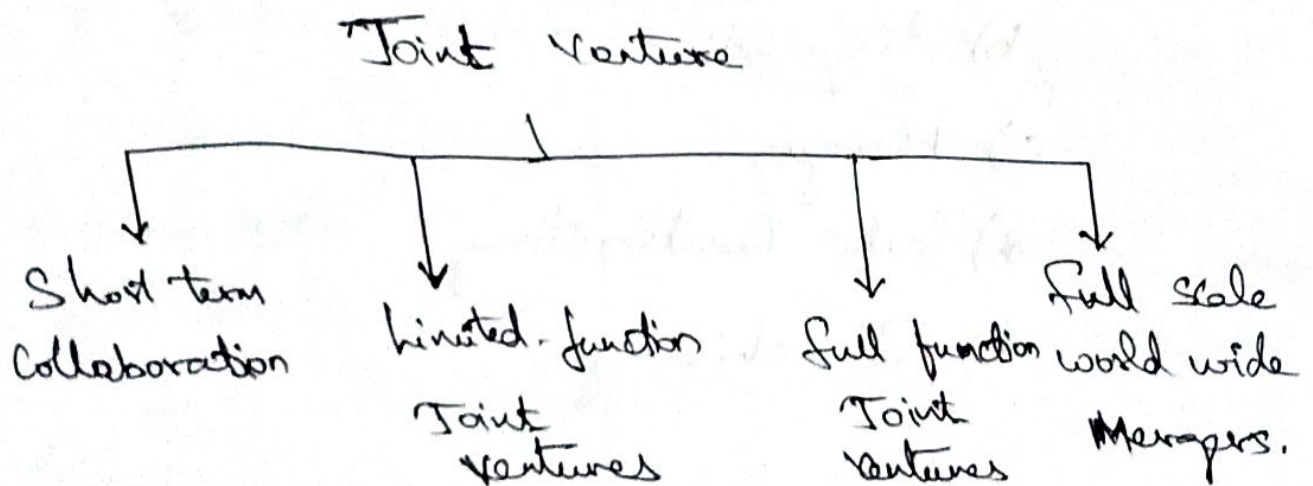 Joint Venture
Short term
Collaboration
Limited-function
Joint
ventures
full function
Joint
ventures
full scale
world wide
Mergers.